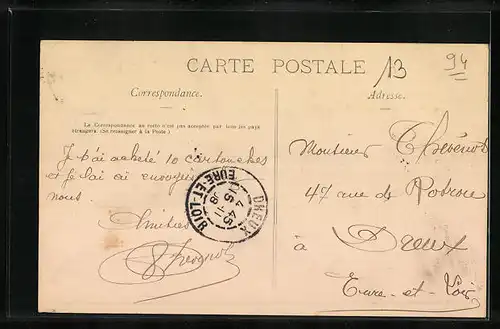 CARTE POSTALE
13
94
Correspondance.
Adresse.
La Correspondance au recto n'est pas acceptée par tous les pays
étrangers (Se renseigner à la Poste)
Je t'ai acheté 10 cartouches
et je lai ai envoyés
nous.
Amitiés
Monsieur Thévenot
47 rue de
à Dreux
Eure-et-Loir
DREUX
4 45
15 -11
08
EURE-ET-LOIR